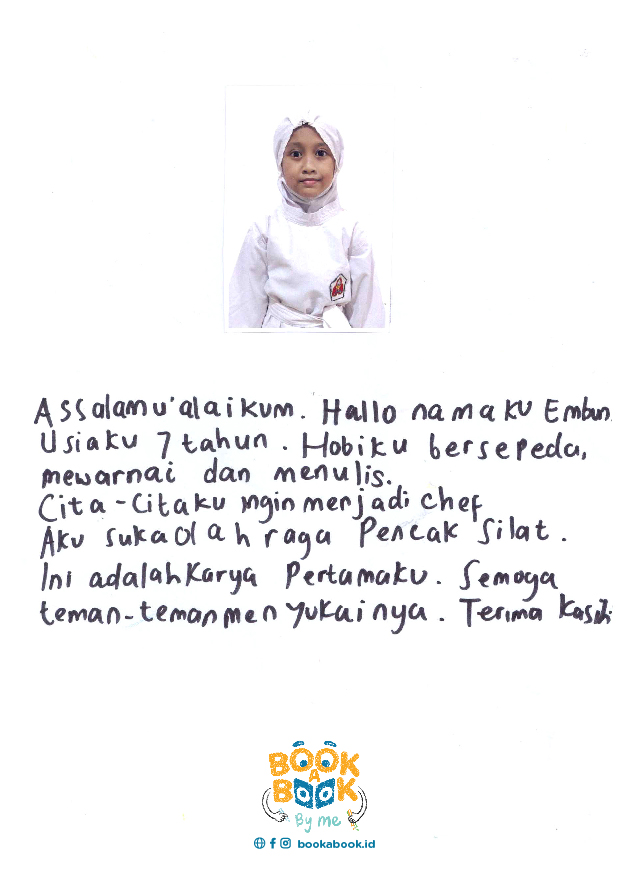 Assalamu'alaikum. Hallo namaku Embun
Usiaku 7 tahun. Hobiku bersepeda,
mewarnai dan menulis.
Cita-Citaku ingin menjadi chef
Aku suka olahraga Pencak Silat.
Ini adalah Karya Pertamaku. Semoga
teman-teman menyukainya. Terima kasih
BOOK
A
BOOK
By me
bookabook.id